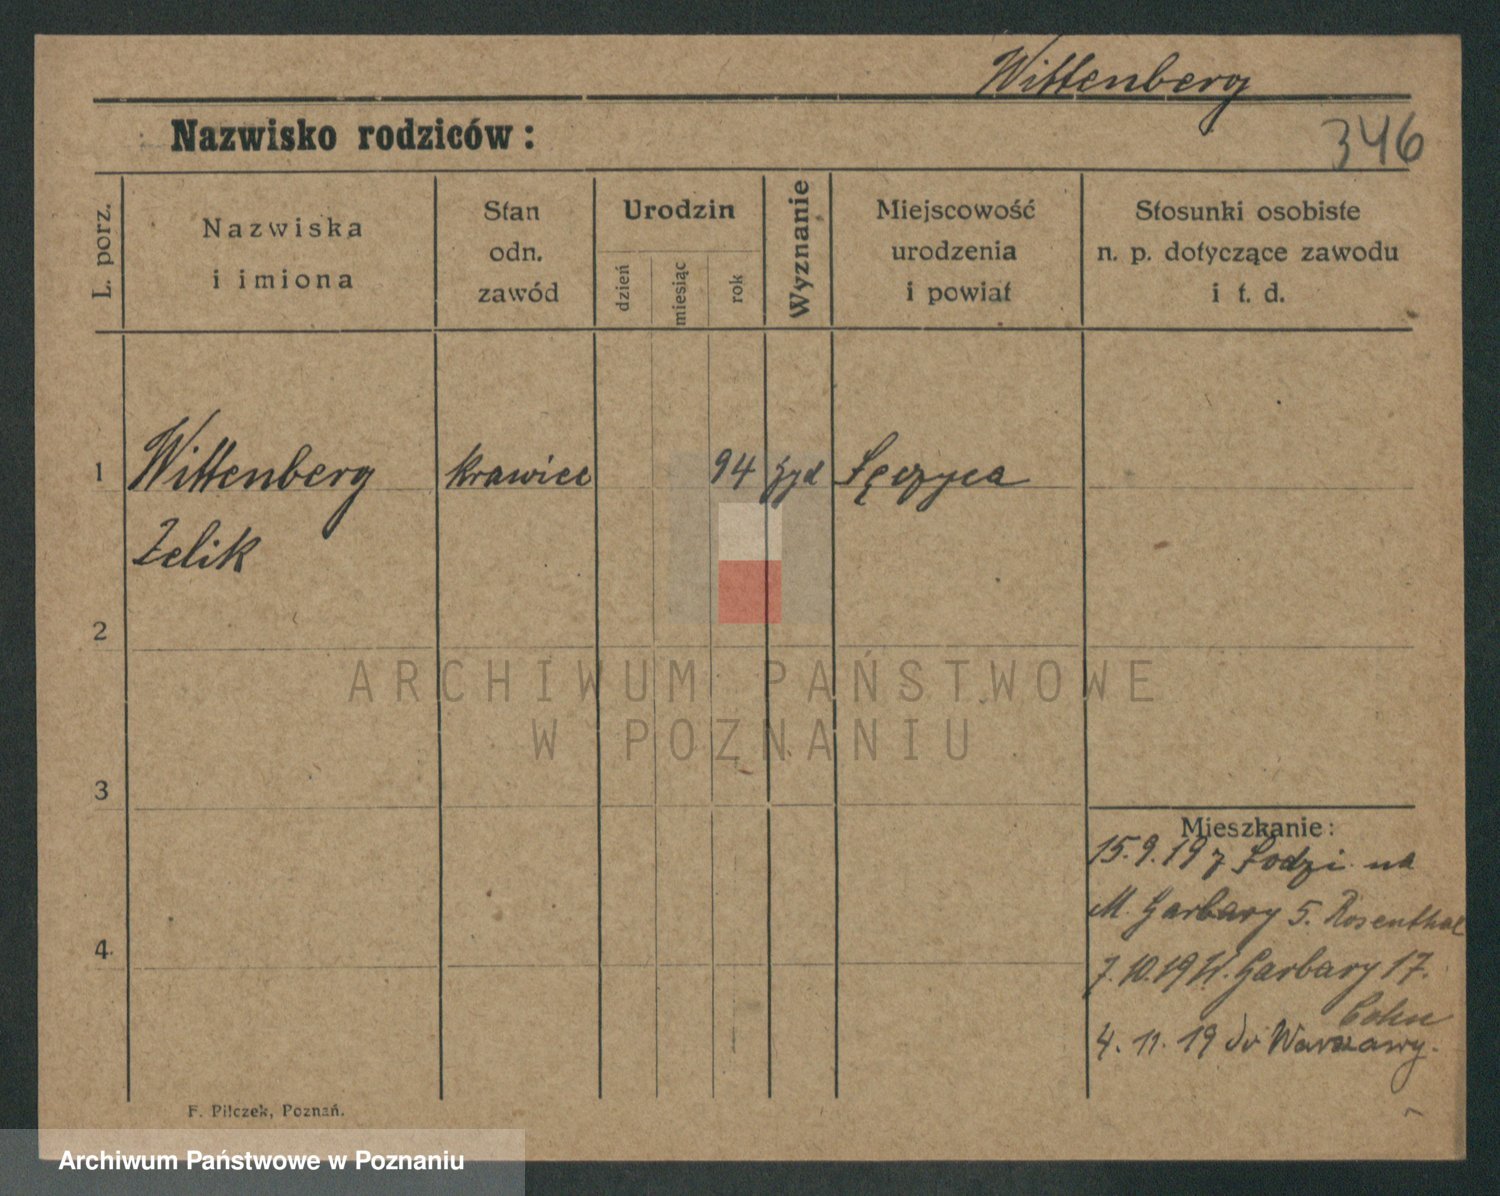 Wittenberg
Nazwisko rodziców:
346
L. porz.
Nazwiska
i imiona
Stan
odn.
zawód
Urodzin
dzień
miesiąc
rok
Wyznanie
Miejscowość
urodzenia
i powiat
Stosunki osobiste
n. p. dotyczące zawodu
i t. d.
1
Wittenberg
krawiec
94
żyd
Łęczyca
Zelik
2
ARCHIWUM PAŃSTWOWE
W POZNANIU
3
Mieszkanie:
15.9.19 z Łodzi na
M. Garbary 5. Rosenthal
4
7.10.19 W. Garbary 17.
Cohn
4. 11. 19 do Warszawy.
F. Pilczek, Poznań.
Archiwum Państwowe w Poznaniu